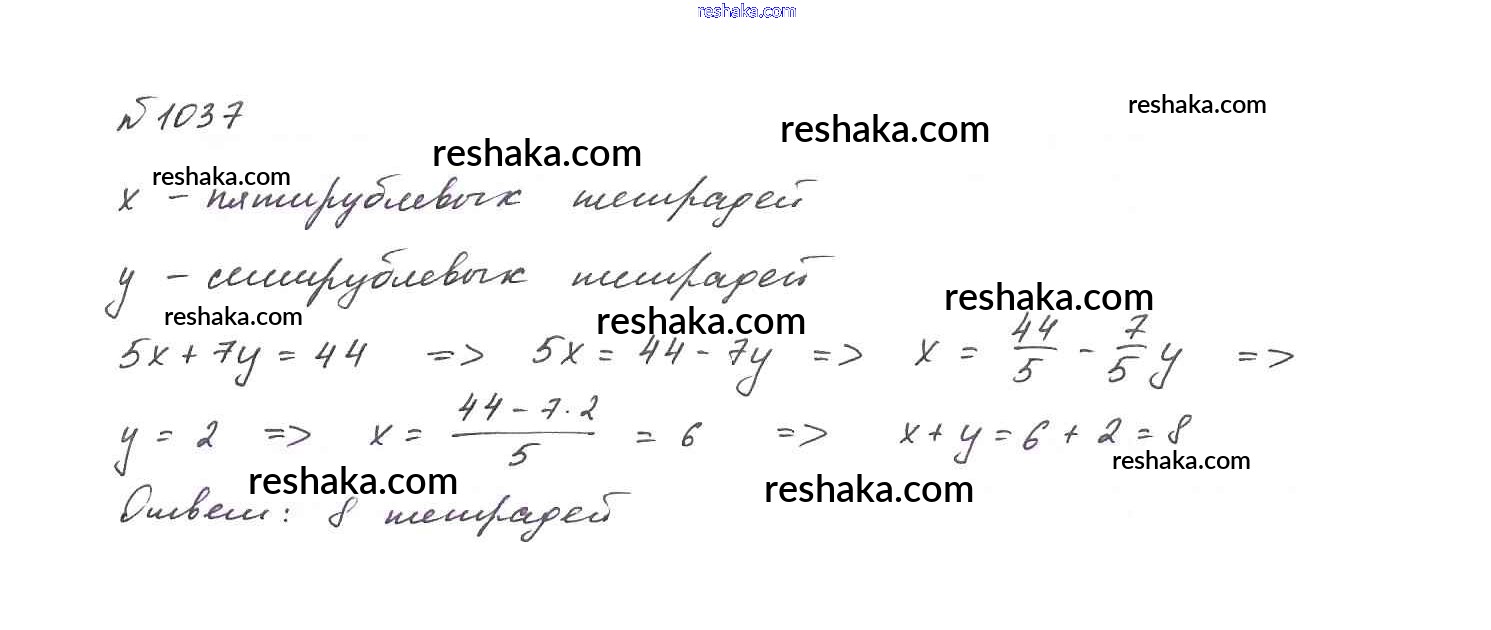 reshaka.com
№1037
reshaka.com
reshaka.com
reshaka.com
reshaka.com
x - пятирублевых тетрадей
y - семирублевых тетрадей
reshaka.com
reshaka.com
reshaka.com
5x + 7y = 44 => 5x = 44 - 7y => x = 44/5 - 7/5 y =>
y = 2 => x = (44 - 7·2)/5 = 6 => x + y = 6 + 2 = 8
reshaka.com
reshaka.com
reshaka.com
Ответ: 8 тетрадей